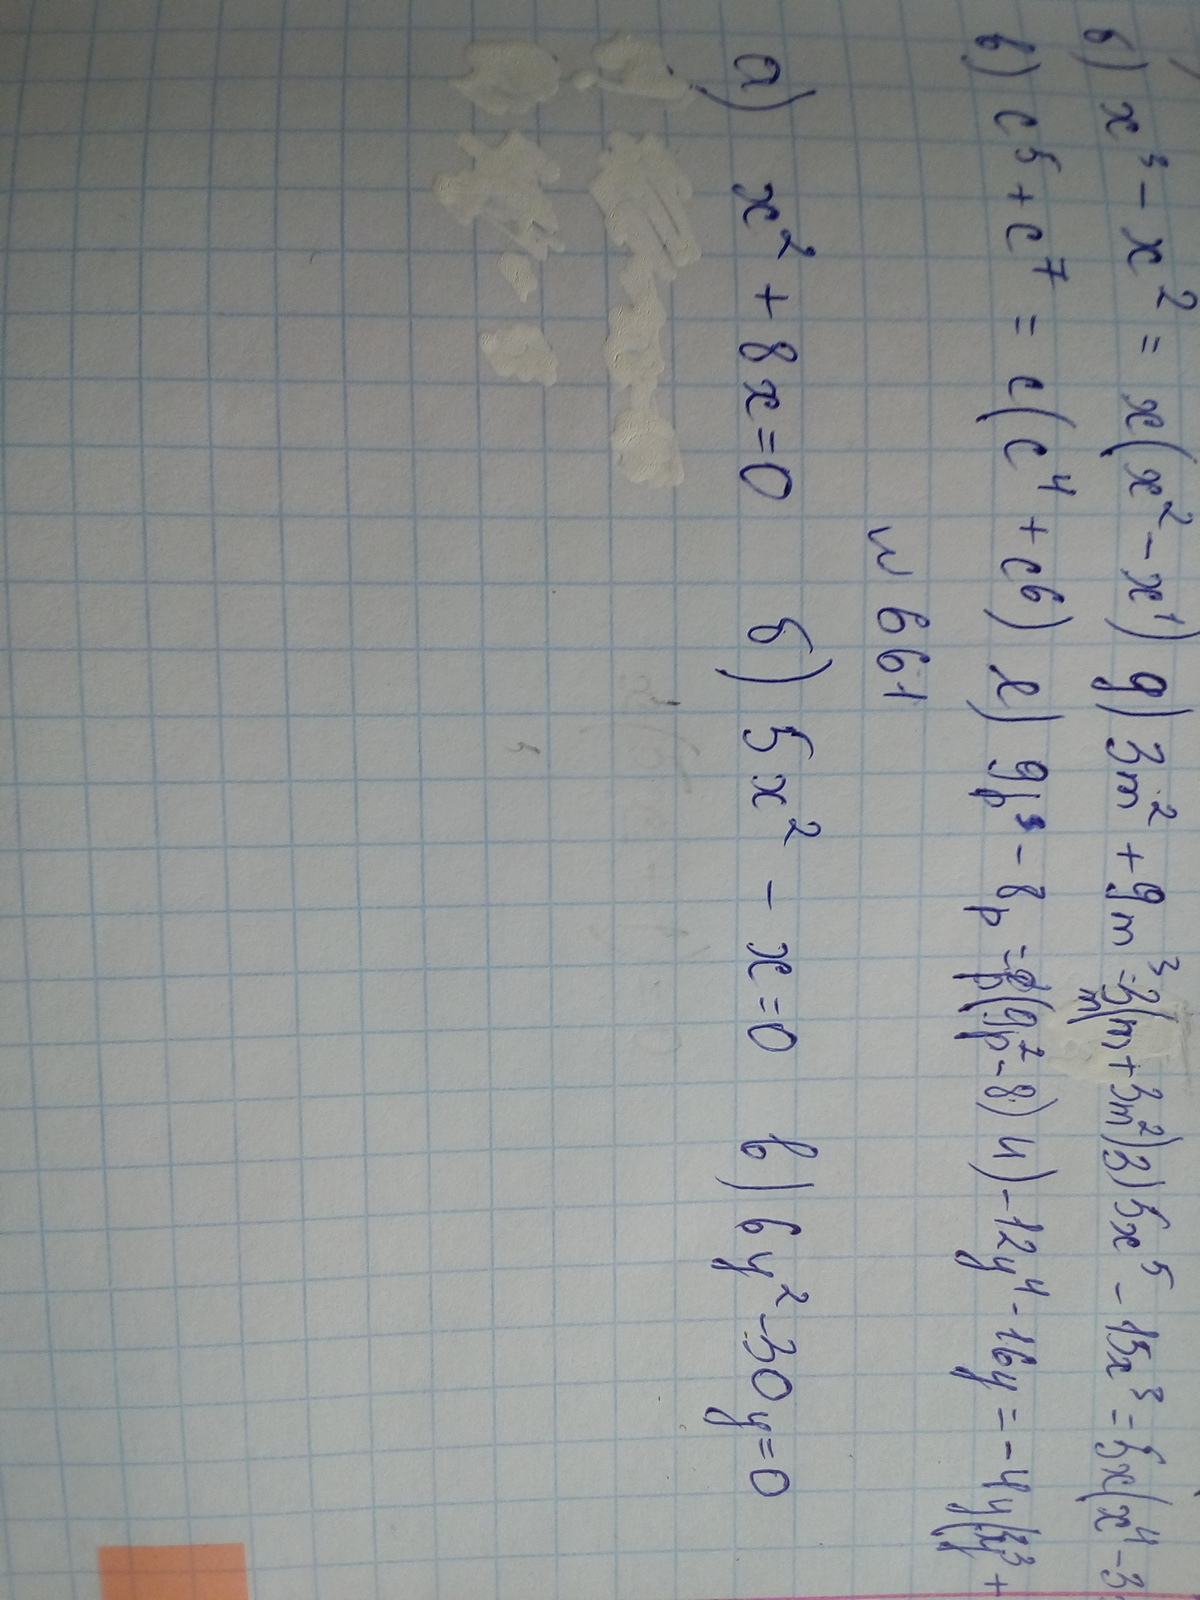 б) x³ - x² = x(x² - x¹) g) 3m² + 9m³ = 3m(m + 3m²) з) 5x⁵ - 15x³ = 5x(x⁴ - 3
в) c⁵ + c⁷ = c(c⁴ + c⁶) е) 9p³ - 8p = p(9p² - 8) и) -12y⁴ - 16y = -4y(3y³ +
N 661
а) x² + 8x = 0 б) 5x² - x = 0 в) 6y² - 30y = 0